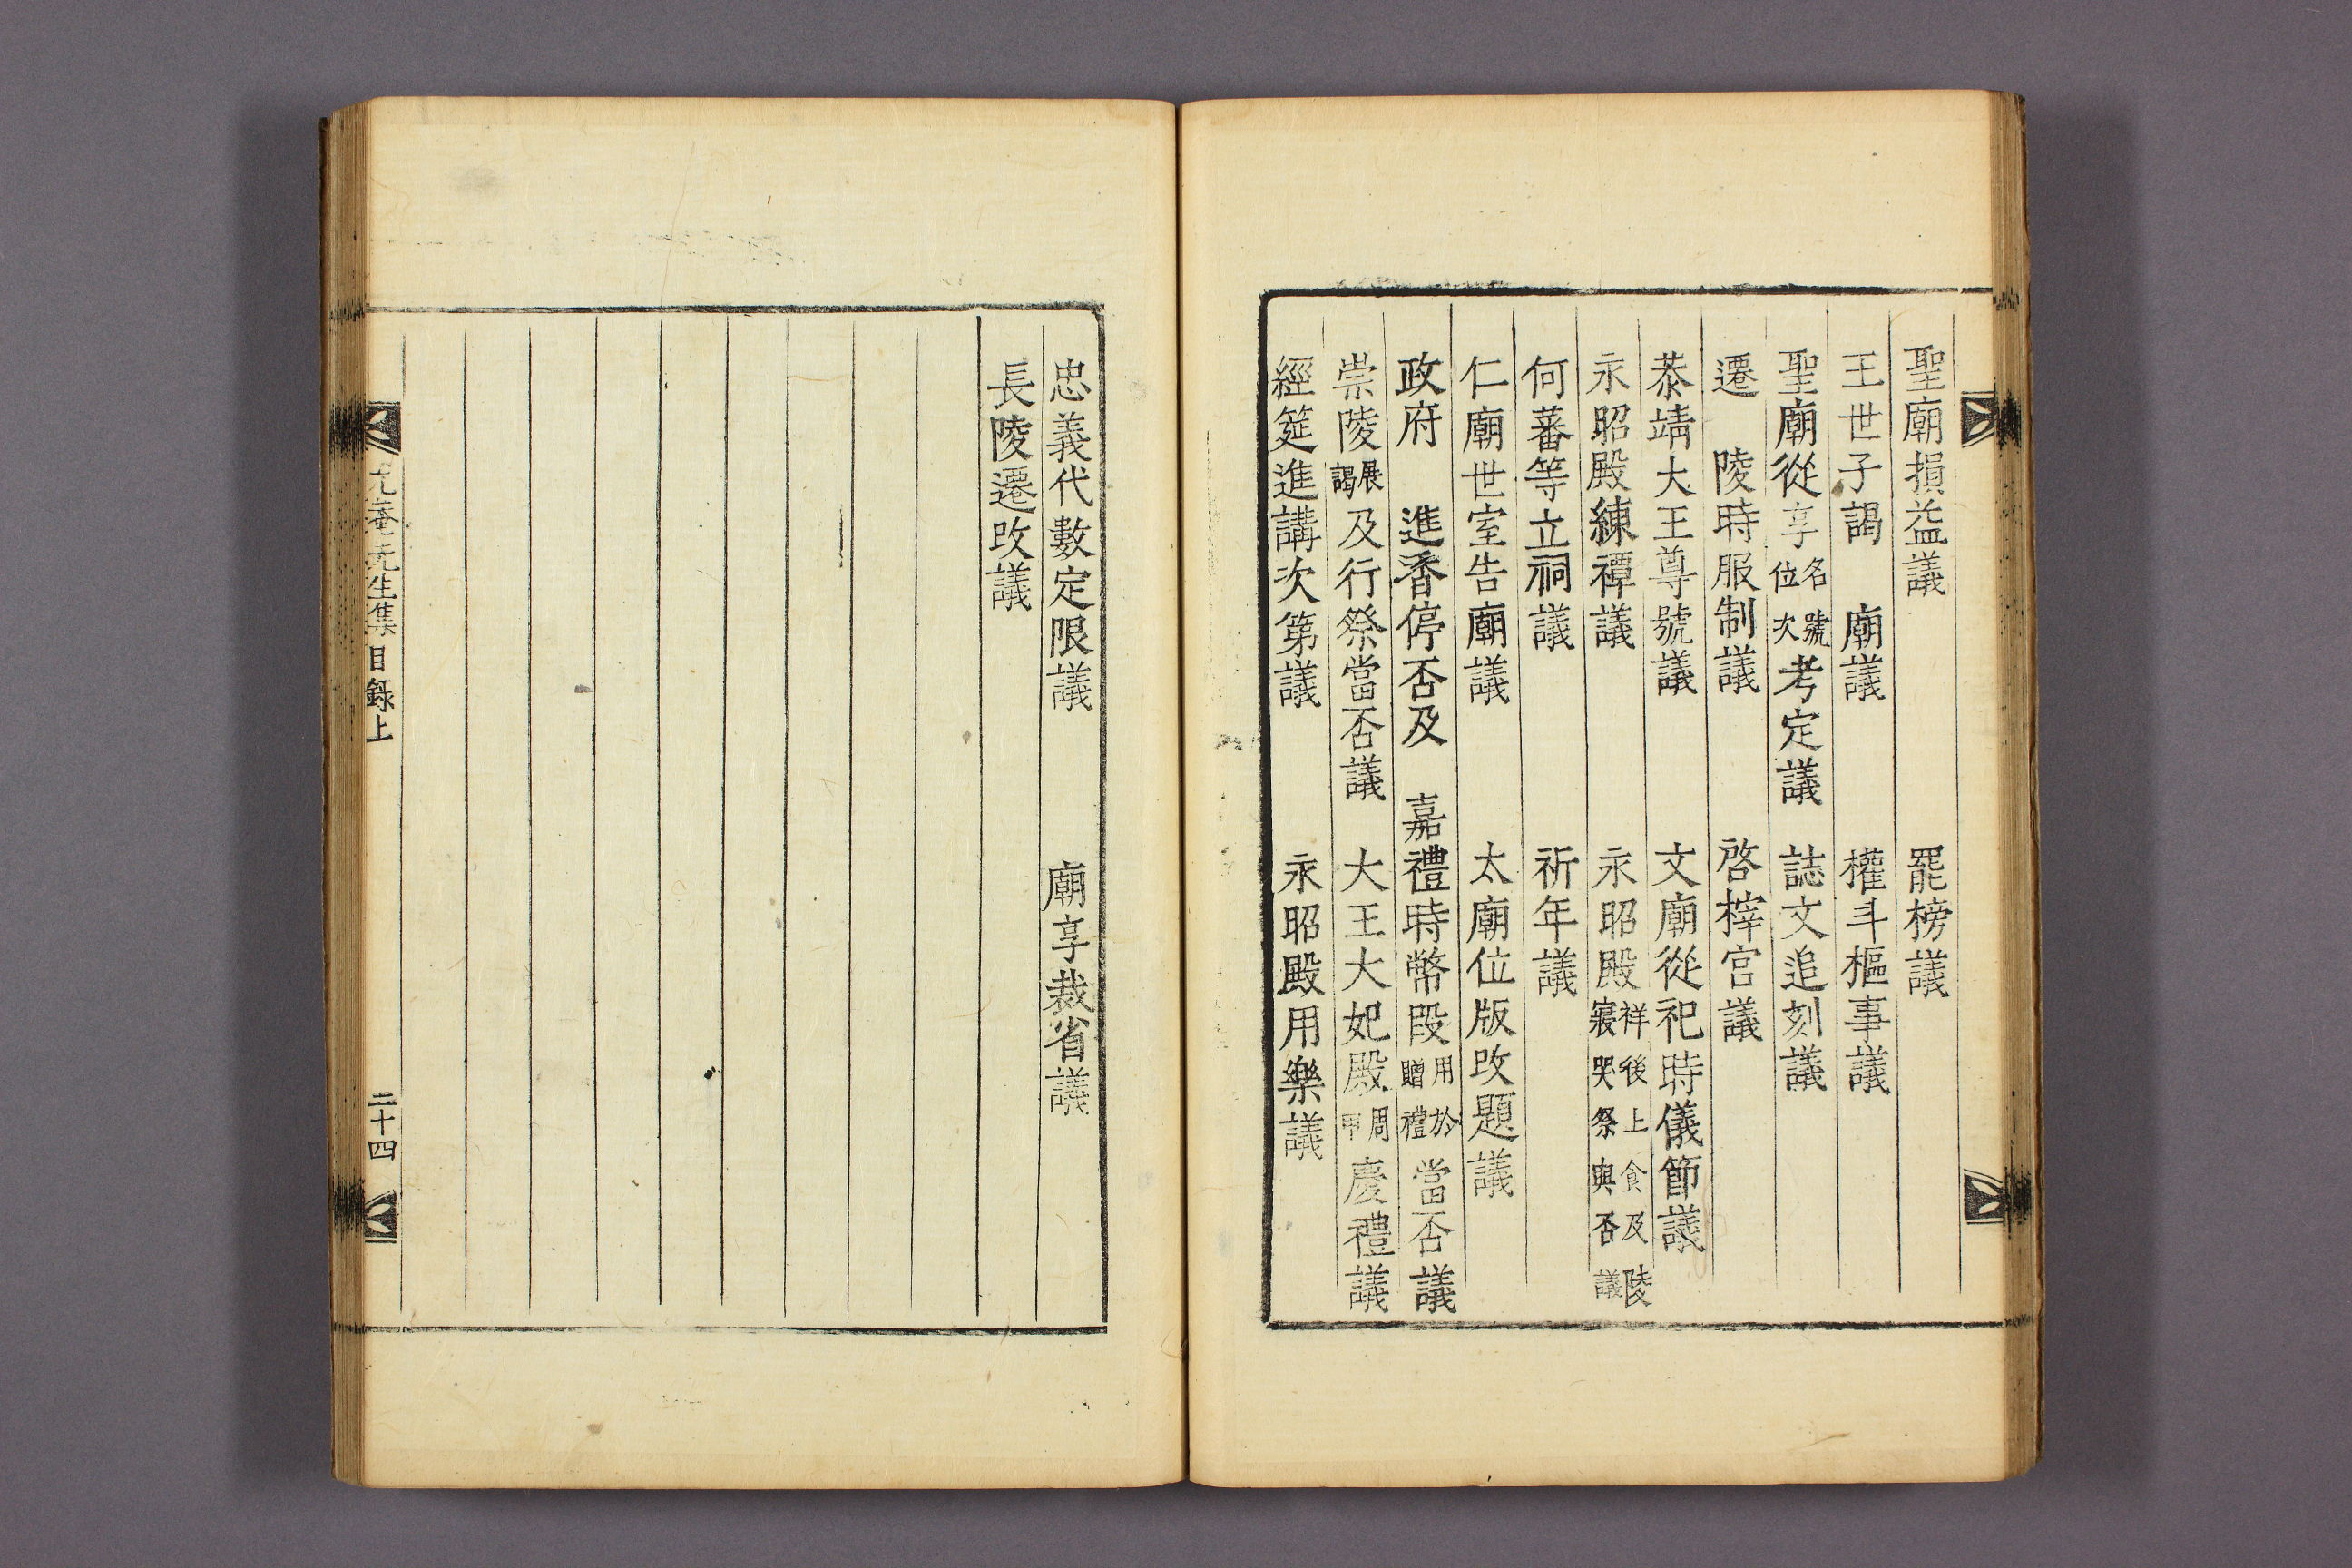 聖廟損益議 罷榜議
王世子謁 廟議 權斗樞事議
聖廟從享名號位次考定議 誌文追刻議
遷 陵時服制議 啓欑宮議
恭靖大王尊號議 文廟從祀時儀節議
永昭殿練禫議 永昭殿祥後上食及陵寢哭祭與否議
何蕃等立祠議 祈年議
仁廟世室告廟議 太廟位版改題議
政府 進香停否及 嘉禮時幣段用於贈禮當否議
崇陵展謁及行祭當否議 大王大妃殿周甲慶禮議
經筵進講次第議 永昭殿用樂議
忠義代數定限議 廟享裁省議
長陵遷改議
尤菴先生集 目錄上 二十四